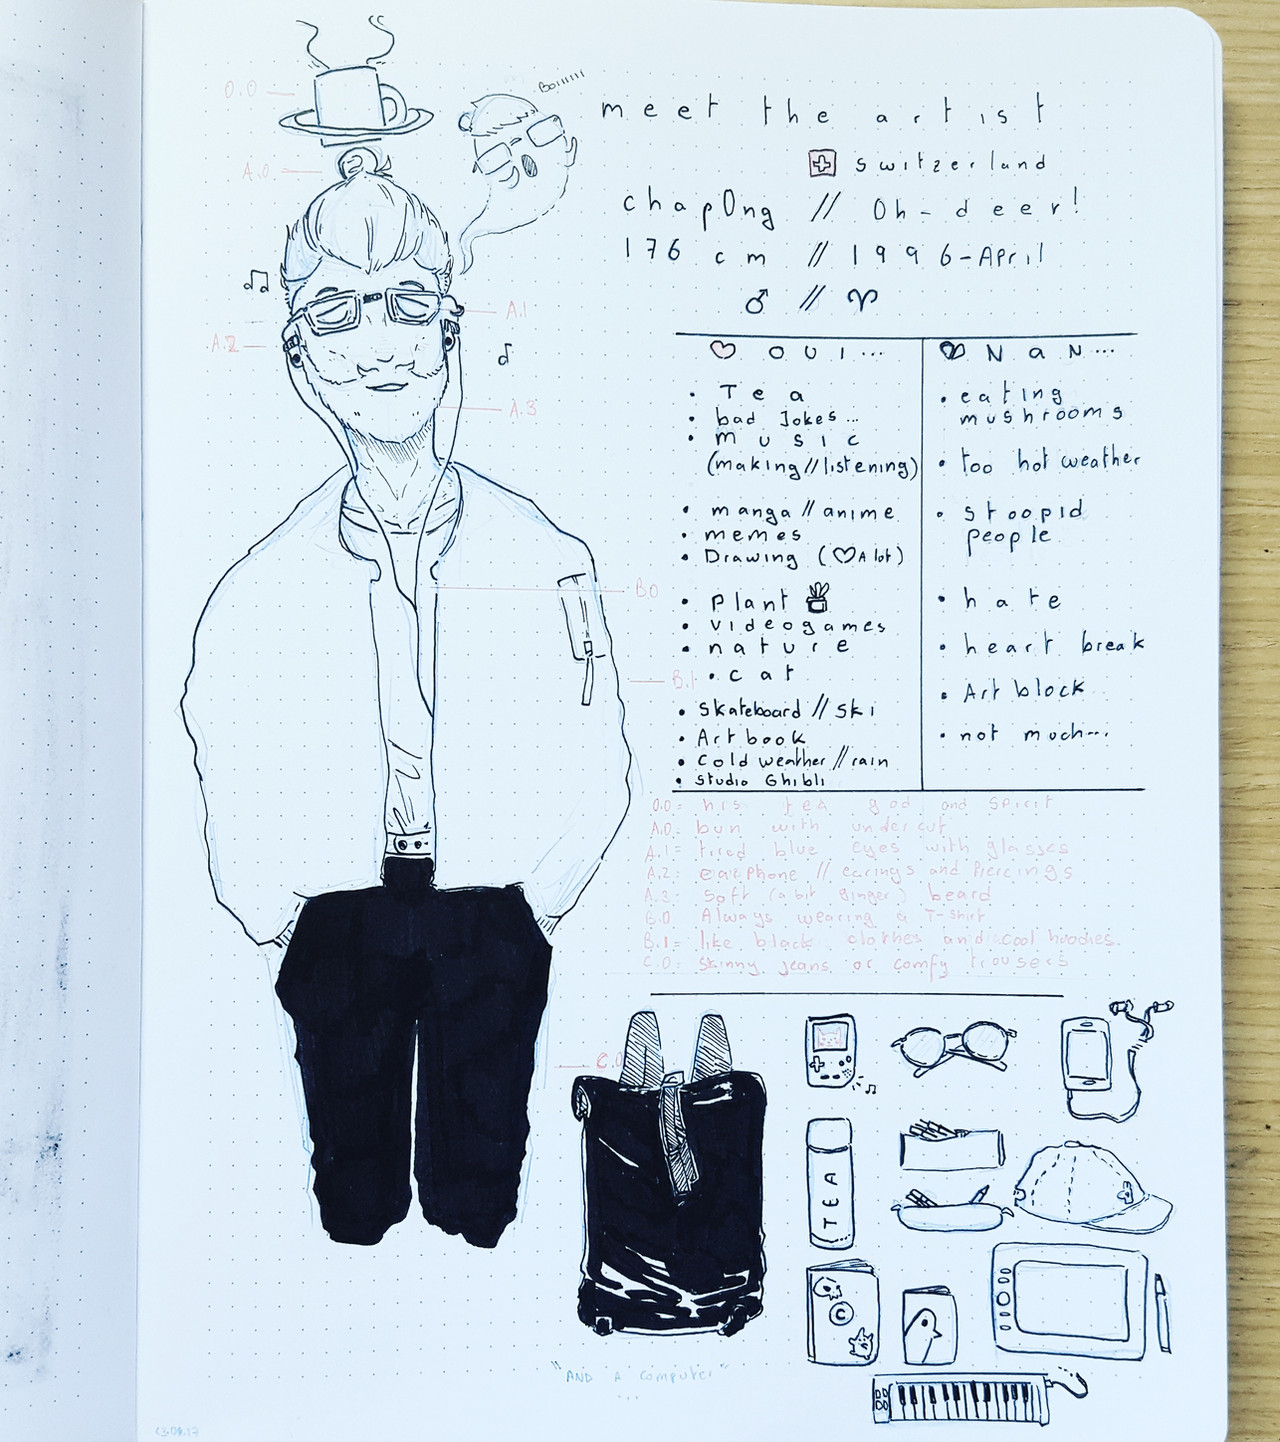 O.O
Boiiiiii
meet the artist
A.O
switzerland
chap0ng // Oh-deer!
176 cm // 1996-April
♂ // ♈
A.1
A.2
A.3
OUI...
• Tea
• bad Jokes...
• music
(making//listening)
• manga//anime
• memes
• Drawing (♡A lot)
• plant
• videogames
• nature
• cat
• Skateboard // Ski
• Art book
• Cold weather // rain
• Studio Ghibli
NaN...
• eating
mushrooms
• too hot weather
• stoopid
people
• hate
• heart break
• Art block
• not much...
B.O
B.1
O.O = his tea god and spirit
A.O = bun with undercut
A.1 = tired blue eyes with glasses
A.2 = earphone // earings and Piercings
A.3 = Soft (a bit ginger) beard
B.O Always wearing a T-shirt
B.1 = like black clothes and cool hoodies.
C.O = skinny jeans or comfy trousers
C.O
TEA
C
"AND A computer"
...